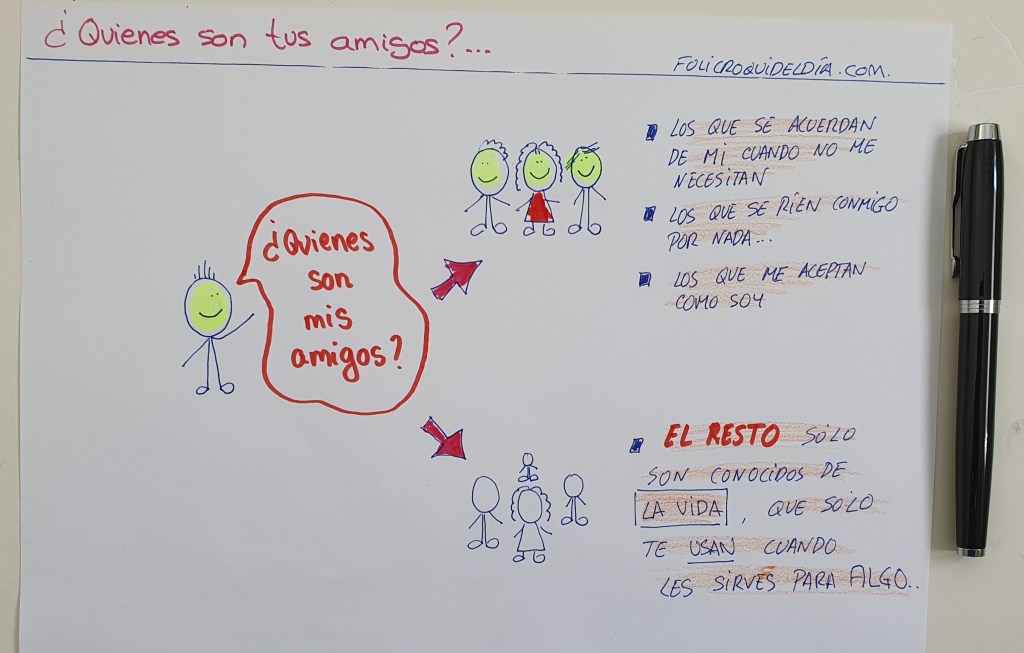 ¿Quienes son tus amigos?...
FOLICROQUIDELDÍA.COM.
¿Quienes
son
mis
amigos?
LOS QUE SE ACUERDAN
DE MI CUANDO NO ME
NECESITAN
LOS QUE SE RÍEN CONMIGO
POR NADA...
LOS QUE ME ACEPTAN
COMO SOY
EL RESTO SÓLO
SON CONOCIDOS DE
LA VIDA, QUE SOLO
TE USAN CUANDO
LES SIRVES PARA ALGO..